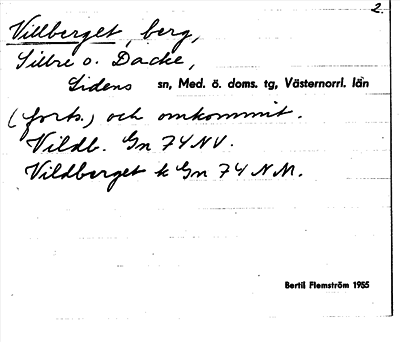 2
Villberget, berg,
Sillre o. Dacke,
Lidens sn, Med. ö. doms. tg, Västernorrl. län
(forts.) och omkommit.
Vildb. Gn 74 NV.
Vildberget k Gn 74 N M.
Bertil Flemström 1955